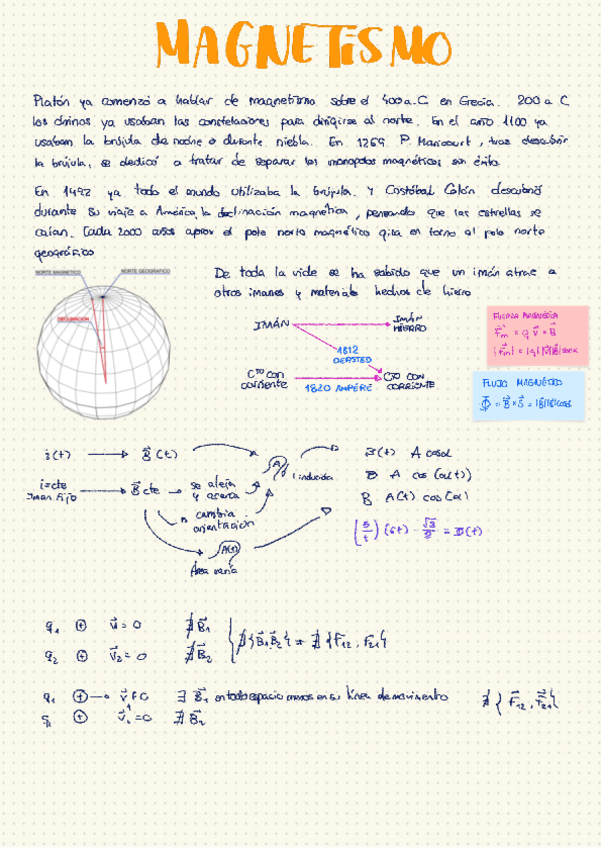 MAGNETISMO
Platón ya comenzó a hablar de magnetismo sobre el 400 a.C. en Grecia. 200 a C
los chinos ya usaban las constelaciones para dirigirse al norte. En el año 1100 ya
usaban la brújula de noche o durante niebla. En 1269 P. Maricourt, tras descubrir
la brújula, se dedicó a tratar de separar los monopolos magnéticos, sin éxito.
En 1492 ya todo el mundo utilizaba la brújula. Y Cristóbal Colón descubrió
durante su viaje a América, la declinación magnética, pensando que las estrellas se
caían. Cada 2000 años aprox el polo norte magnético gira en torno al polo norte
geográfico
NORTE MAGNÉTICO NORTE GEOGRÁFICO
DECLINACIÓN
De toda la vida se ha sabido que un imán atrae a
otros imanes y materiales hechos de hierro
IMÁN
IMÁN
HIERRO
1812
OERSTED
CTO con
corriente
1820 AMPÈRE
CTO CON
CORRIENTE
FUERZA MAGNÉTICA
F⃗m = q v⃗ × B⃗
FLUJO MAGNÉTICO
i(t) → B⃗(t)
A
i inducida
i=cte
Imán fijo
B⃗ cte → se aleja
y acerca
cambia
orientación
A(t)
Área varía
B(t) A cosα
B A cos(α(t))
B A(t) cos(α)
q1 ⊕ v⃗=0 ∄ B⃗1
q2 ⊕ v⃗2=0 ∄ B⃗2
∄{B⃗1,B⃗2} → ∄{F12, F21}
q1 ⊕→ v⃗≠0 ∃ B⃗1 en todo espacio menos en su línea de movimiento
⊕ v⃗=0 ∄ B⃗2
∄{F⃗12, F⃗21}